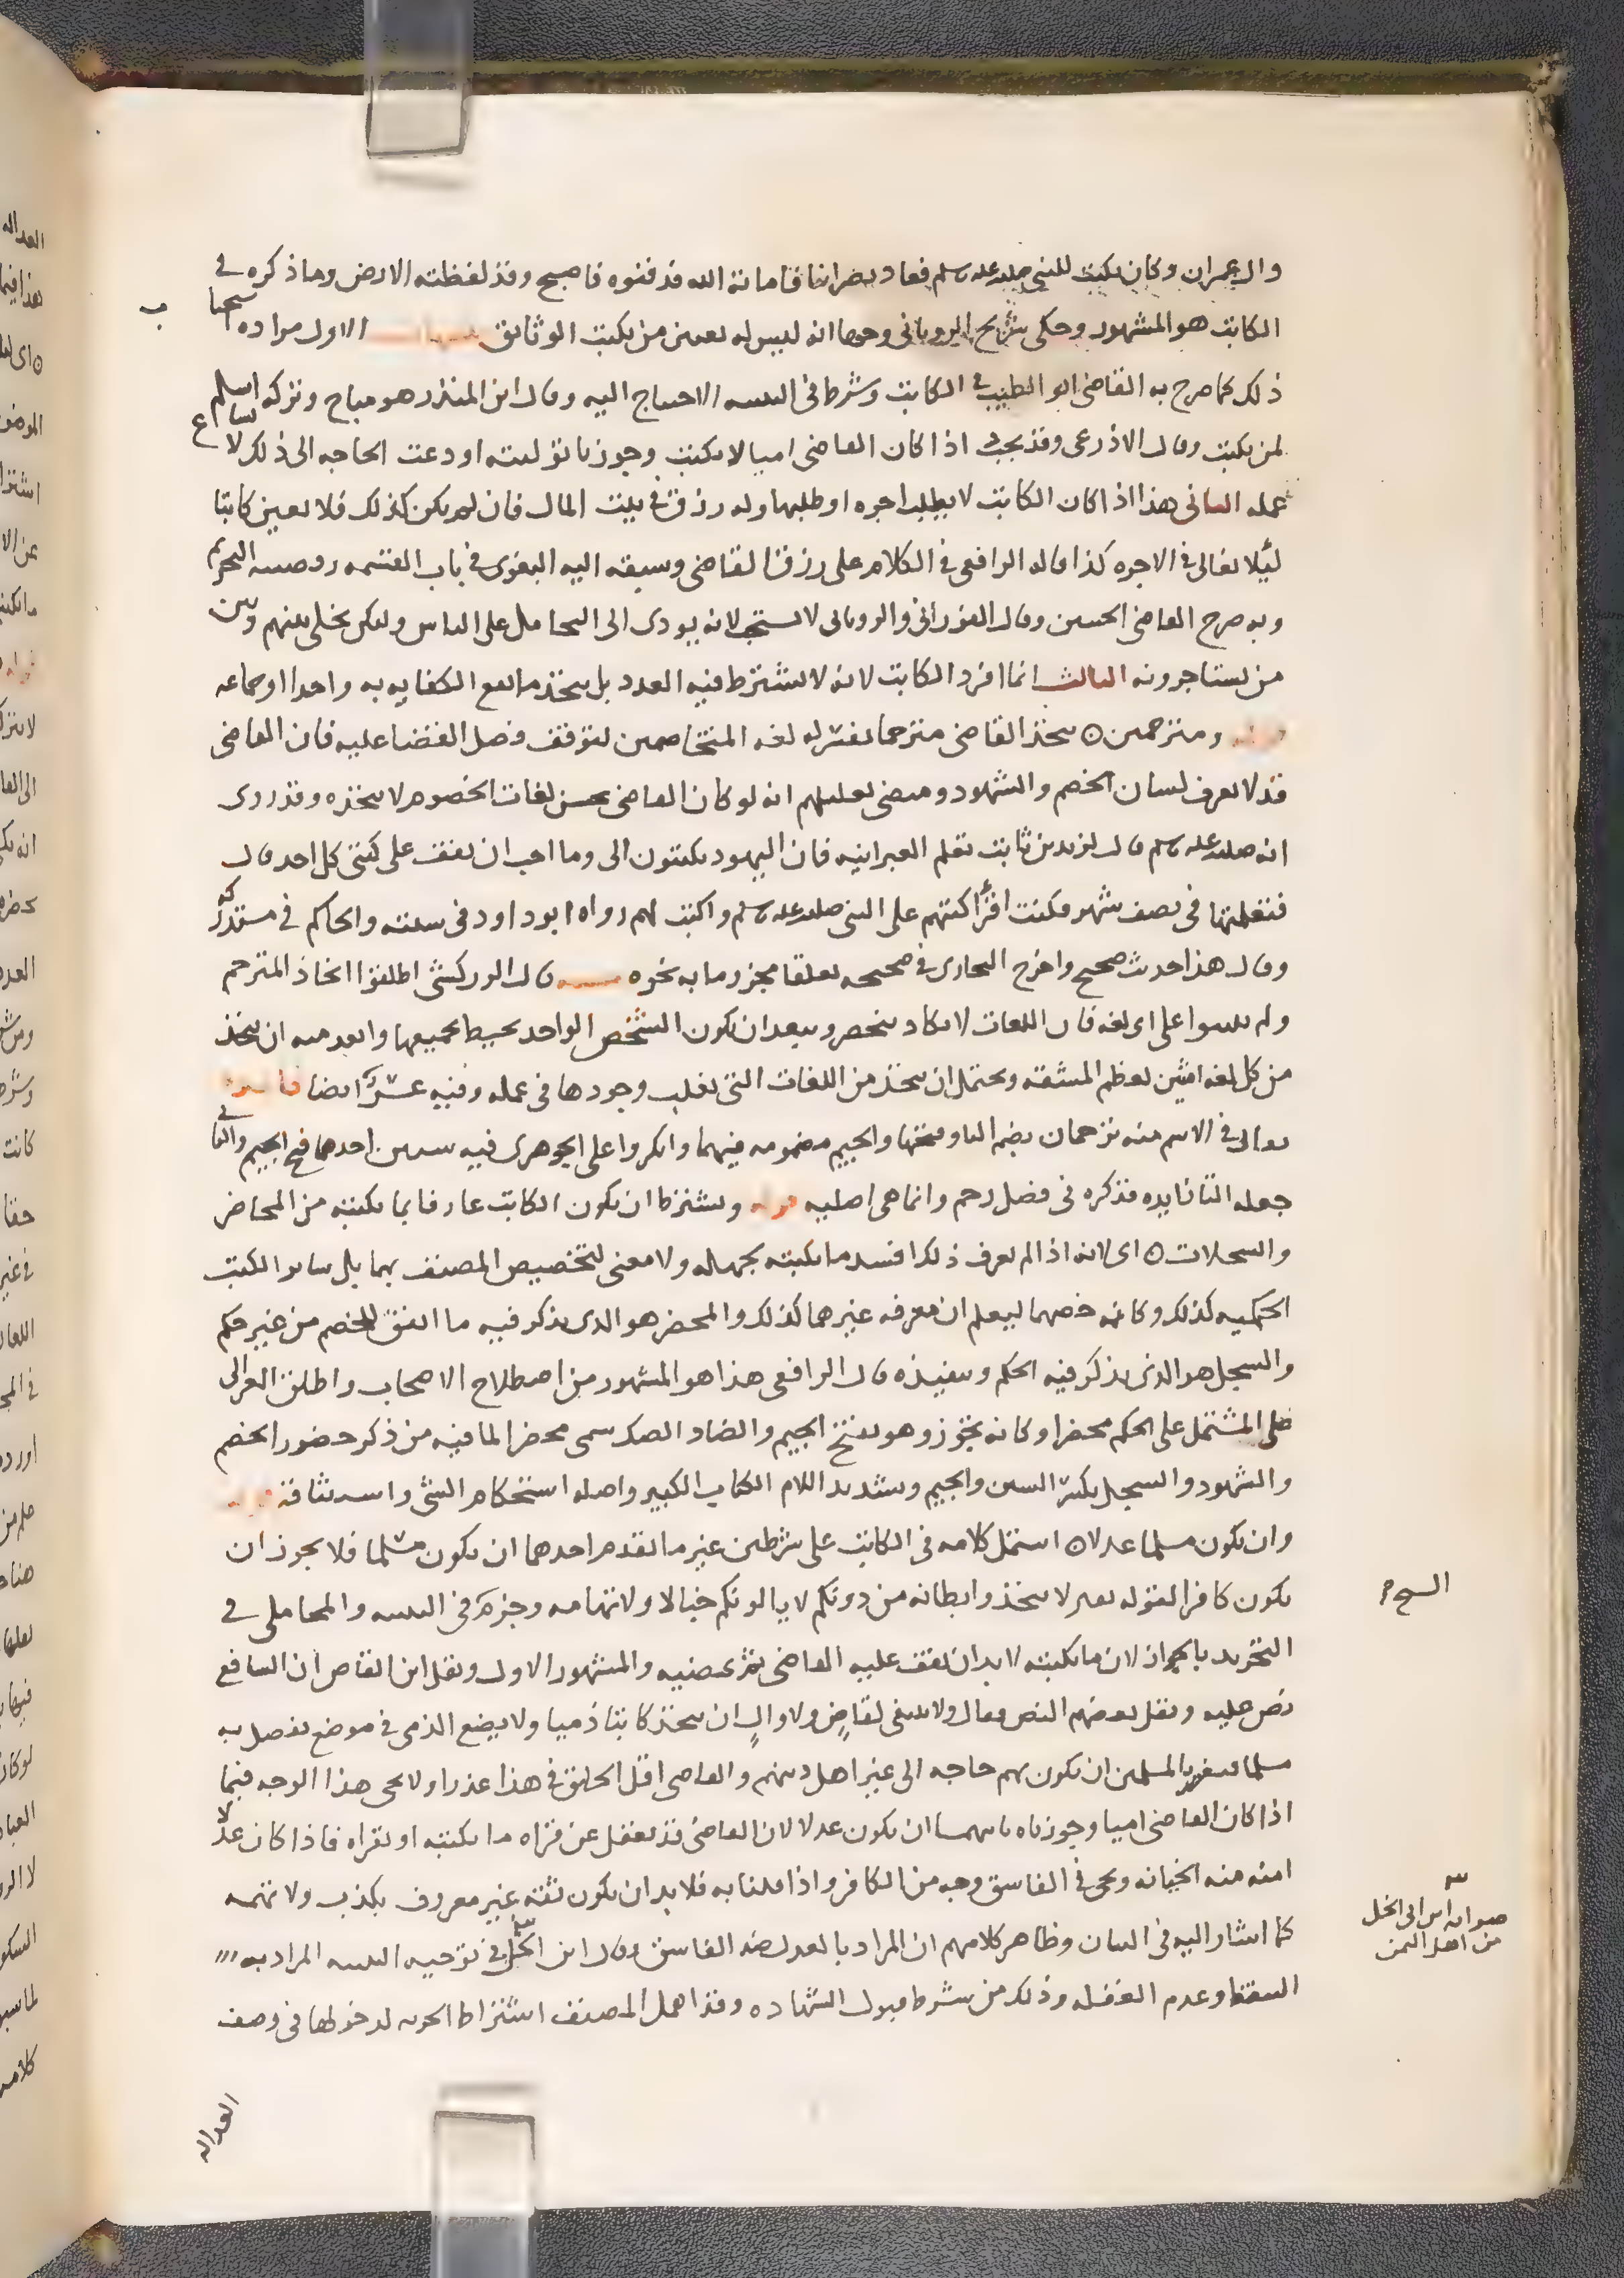 وال عمران وكان يكتب للنبي صلى الله عليه وسلم فعاد نصرانيا فاماته الله فدفنوه فاصبح وقد لفظته الارض وما ذكره في
الكاتب هو المشهور وحكى شريح الروياني وجها انه ليس له تعيين من يكتب الوثائق الاول مراده استحباب
ذلك كما صرح به القاضي ابو الطيب في الكاتب وشرط في التنبيه الاحتياج اليه وقال ابن المنذر هو مباح وتركه اسلم
لمن يكتب وقال الاذرعي وقد يجب اذا كان القاضي اميا لا يكتب وجوزنا توليته او دعت الحاجه الى ذلك لاتساع
عمله الثاني هذا اذا كان الكاتب لا يطلب اجره او طلبها وله رزق في بيت المال فان لم يكن كذلك فلا يعين كاتبا
ليلا يغالي في الاجره كذا قاله الرافعي في الكلام على رزق القاضي وسبقه اليه البغوي في باب القسمه وقضيته التحريم
وبه صرح القاضي الحسين وقال الفوراني والروياني لا يستحب لانه يودي الى التحامل على الناس ولكن يخلي بينهم وبين
من يستاجرونه الثالث انما افرد الكاتب لانه لا يشترط فيه العدد بل يتخذ ما تقع الكفايه به واحدا او جماعه
قوله ومترجمين ٥ يتخذ القاضي مترجما يفسر له لغه المتخاصمين لتوقف فصل القضا عليه فان القاضي
قد لا يعرف لسان الخصم والشهود ومقتضى تعليلهم انه لو كان القاضي يحسن لغات الخصوم لا يتخذه وقد روى
انه صلى الله عليه وسلم قال لزيد بن ثابت تعلم العبرانيه فان اليهود يكتبون الي وما احب ان يقف على كتبي كل احد قال
فتعلمتها في نصف شهر فكنت اقرأ كتبهم على النبي صلى الله عليه وسلم واكتب لهم رواه ابو داود في سننه والحاكم في مستدركه
وقال هذا حديث صحيح واخرج البخاري في صحيحه تعليقا مجزوما به نحوه قال الزركشي اطلقوا اتخاذ المترجم
ولم يبينوا على اي لغه فان اللغات لا تكاد تنحصر ويبعد ان يكون الشخص الواحد يحيط بجميعها وابعد منه ان يتخذ
من كل لغه اثنين لعظم المشقه ويحتمل ان يتخذ من اللغات التي يغلب وجودها في عمله وفيه عسر ايضا
يقال في الاسم منه ترجمان بضم التا وفتحها والجيم مضمومه فيهما وانكروا على الجوهري فيه شيئين احدهما فتح الجيم والثاني
جعله التا زايده فذكره في فصل رجم وانما هي اصليه قوله ويشترط ان يكون الكاتب عارفا بما يكتبه من المحاضر
والسجلات ٥ اي لانه اذا لم يعرف ذلك افسد ما يكتبه بجهله ولا معنى لتخصيص المصنف بهما بل سائر الكتب
الحكميه كذلك وكانه خصهما ليعلم ان معرفه غيرهما كذلك والمحضر هو الذي يذكر فيه ما اتفق للخصم من غير حكم
والسجل هو الذي يذكر فيه الحكم وتنفيذه قال الرافعي هذا هو المشهور من اصطلاح الاصحاب واطلق الغزالي
على المشتمل على الحكم محضرا وكانه تجوز وهو بفتح الجيم والضاد الصك سمي محضرا لما فيه من ذكر حضور الخصم
والشهود والسجل بكسر السين والجيم وتشديد اللام الكتاب الكبير واصله استحكام الشي واستيثاقه قوله
وان يكون مسلما عدلا ٥ اشتمل كلامه في الكاتب على شرطين غير ما تقدم احدهما ان يكون مسلما فلا يجوز ان
يكون كافرا لقوله تعالى لا تتخذوا بطانه من دونكم لا يالونكم خبالا ولاتهامه وجزم في التنبيه والمحاملي في
التجريد بالجواز لان ما يكتبه لا بد ان يقف عليه القاضي ثم يمضيه والمشهور الاول ونقل ابن القاص ان الشافعي
نص عليه ونقل بعضهم النص فقال ولا ينبغي لقاضٍ ولا والٍ ان يتخذ كاتبا ذميا ولا يضع الذمي في موضع يفضل به
مسلما المسلمين ان يكون بهم حاجه الى غير اهل دينهم والقاضي اقل الخلق في هذا عذرا ولا يجي هذا الوجه فيما
اذا كان القاضي اميا وجوزناه ثانيهما ان يكون عدلا لان القاضي قد يغفل عن قراه ما يكتبه او يقراه فاذا كان عدلا
امنه منه الخيانه ويجي في الفاسق وجه من الكافر واذا قلنا به فلا بد ان يكون ثقه غير معروف بكذب ولا تهمه
كما اشار اليه في البيان وظاهر كلامهم ان المراد بالعدل ضد الفاسق وقال ابن الخل في توجيه التنبيه المراد به
التيقظ وعدم الغفله وذلك من شرط قبول الشهاده وقد اهمل المصنف اشتراط الحريه لدخولها في وصف
العداله
صوابه ابن ابي الخل
من اهل اليمن